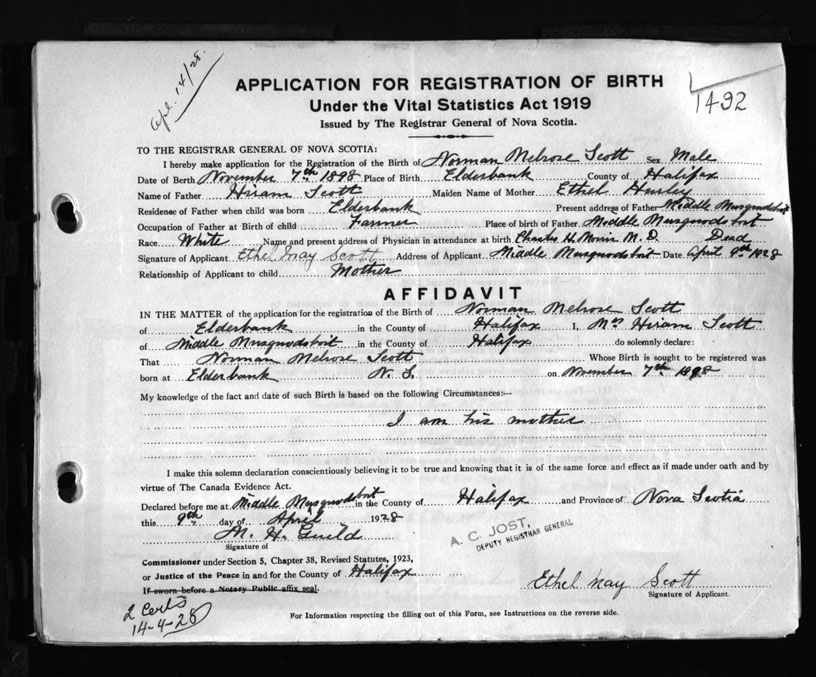 Apl. 14/28.
1492
APPLICATION FOR REGISTRATION OF BIRTH
Under the Vital Statistics Act 1919
Issued by The Registrar General of Nova Scotia.
TO THE REGISTRAR GENERAL OF NOVA SCOTIA:
I hereby make application for the Registration of the Birth of Norman Melrose Scott Sex Male
Date of Berth November 7th 1898 Place of Birth Elderbank County of Halifax
Name of Father Hiram Scott Maiden Name of Mother Ethel
Residense of Father when child was born Elderbank Present address of Father Middle Musquodoboit
Occupation of Father at Birth of child Farmer Place of birth of Father Middle Musquodoboit
Race White Name and present address of Physician in attendance at birth Charles H. Morris M. D. Dead
Signature of Applicant Ethel May Scott Address of Applicant Middle Musquodoboit Date April 9th 1928
Relationship of Applicant to child Mother
AFFIDAVIT
IN THE MATTER of the application for the registration of the Birth of Norman Melrose Scott
of Elderbank in the County of Halifax I, Mrs Hiram Scott
of Middle Musquodoboit in the County of Halifax do solemnly declare:
That Norman Melrose Scott Whose Birth is sought to be registered was
born at Elderbank N. S. on November 7th 1898
My knowledge of the fact and date of such Birth is based on the following Circumstances:--
I am his mother
I make this solemn declaration conscientiously believing it to be true and knowing that it is of the same force and effect as if made under oath and by
virtue of The Canada Evidence Act.
Declared before me at Middle Musquodoboit in the County of Halifax and Province of Nova Scotia
this 9th day of April 1928
M. H. Guild
Signature of
A. C. JOST,
DEPUTY REGISTRAR GENERAL
Commissioner under Section 5, Chapter 38, Revised Statutes, 1923,
or Justice of the Peace in and for the County of Halifax
If sworn before a Notary Public affix seal.
Ethel May Scott
Signature of Applicant.
2 Certs
14-4-28
For Information respecting the filling out of this Form, see Instructions on the reverse side.